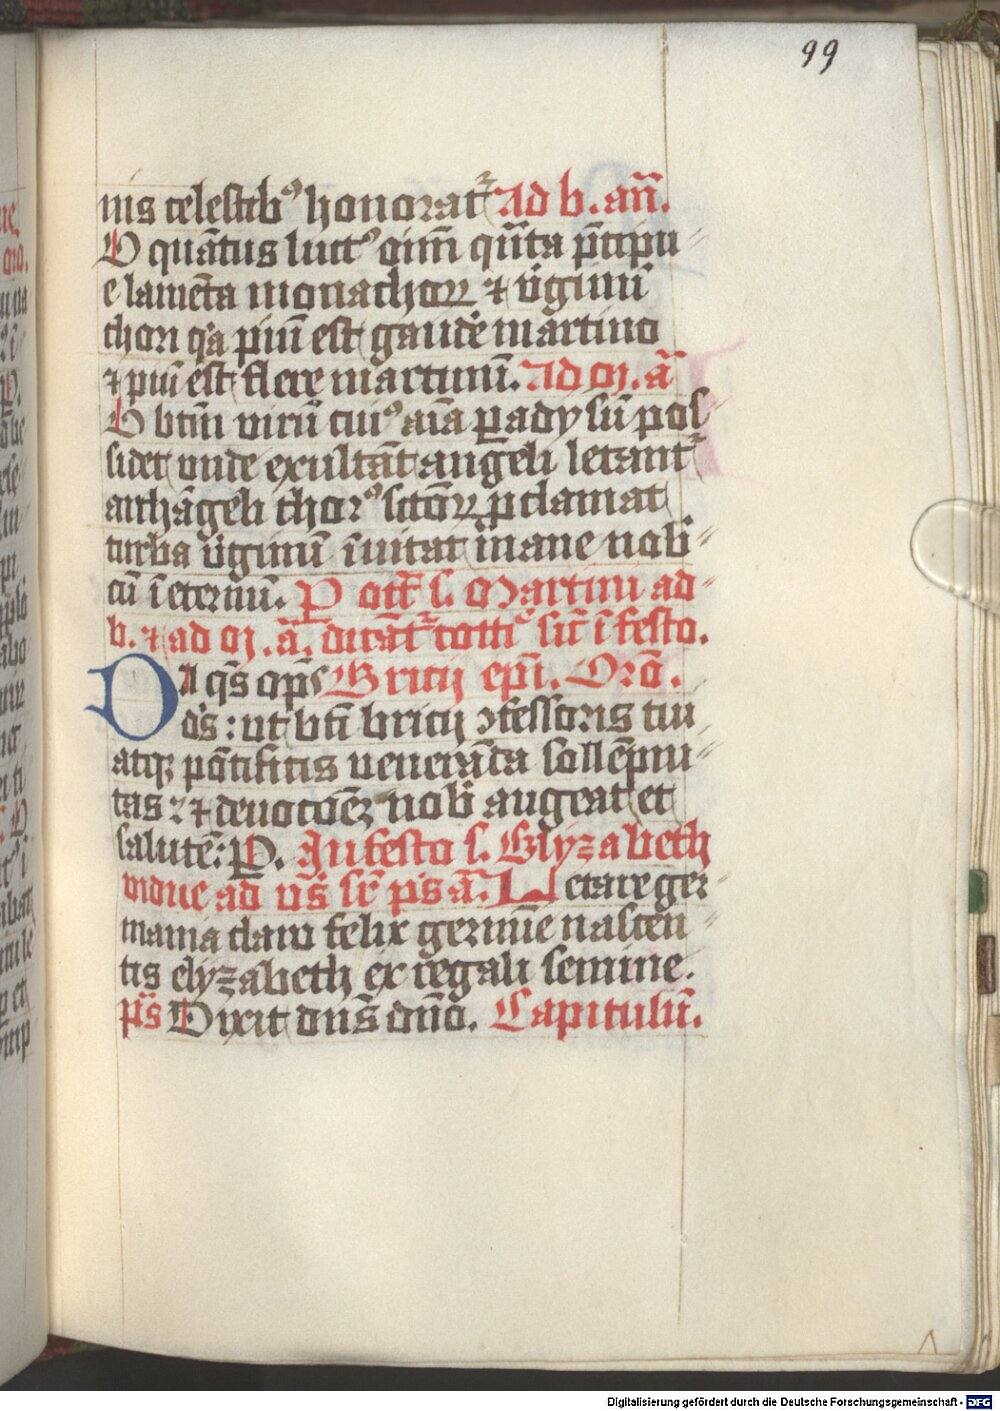 99
nis celestib⁹ honorat᷑ Ad b. an̄.
O quātus luct⁹ oim̄ qn̄ta p̄cipu
e lamēta monachoꝝ ⁊ v̄ginū
chori qͣa piū est gaudē martino
⁊ piū est flere martinū. Ad m. ā
O btm̄ virū cui⁹ aīa ꝑadysū pos
sidet vnde exultāt angeli letant᷑
archāgeli chor⁹ sctōꝝ ꝓclamat
turba v̄ginū īuitat mane nob̄
cū īeternū. P oct̄ s. Martini ad
b. ⁊ ad m. ā. dicāt᷑ sic̄ ī festo.
DA qs̄ om̄ps Bricij ep̄i. Orō.
ds̄: ut bt̄i bricij ꝯfessoris tui
atqꝫ pōtificis veneranda sollēpni
tas: ⁊ deuotōēꝫ nob̄ augeat et
salutē: P. In festo s. Elyzabeth
vidue ad vs̄ sr̄ ps̄ ā. Letare ger
mania claro felix germīe nascen
tis elyzabeth ex regali semine.
ps̄ Dixit dn̄s dn̄o. Capitulū.
Digitalisierung gefördert durch die Deutsche Forschungsgemeinschaft - DFG